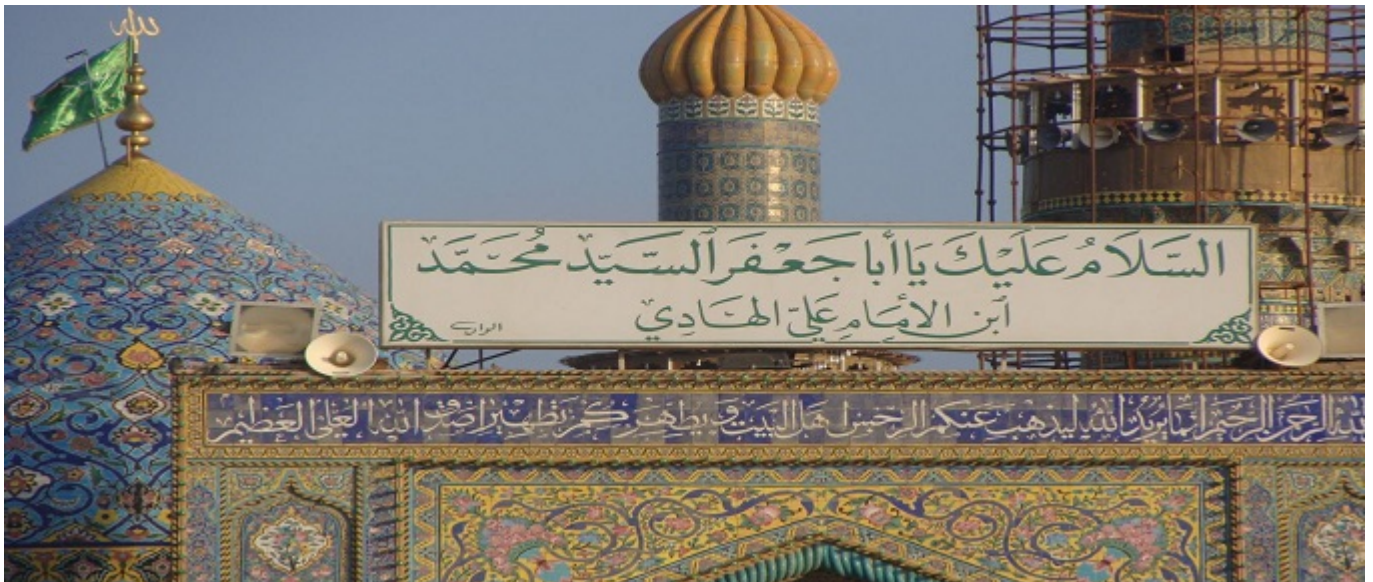 الله
السَّلَامُ عَلَيْكَ يَا أَبَا جَعْفَرٍ السَّيِّدِ مُحَمَّد
ابن الإمَامِ عَلِيّ الهَادِي
الله الرحمن الرحيم انما يريد الله ليذهب عنكم الرجس اهل البيت و يطهركم تطهيرا صدق الله العلي العظيم